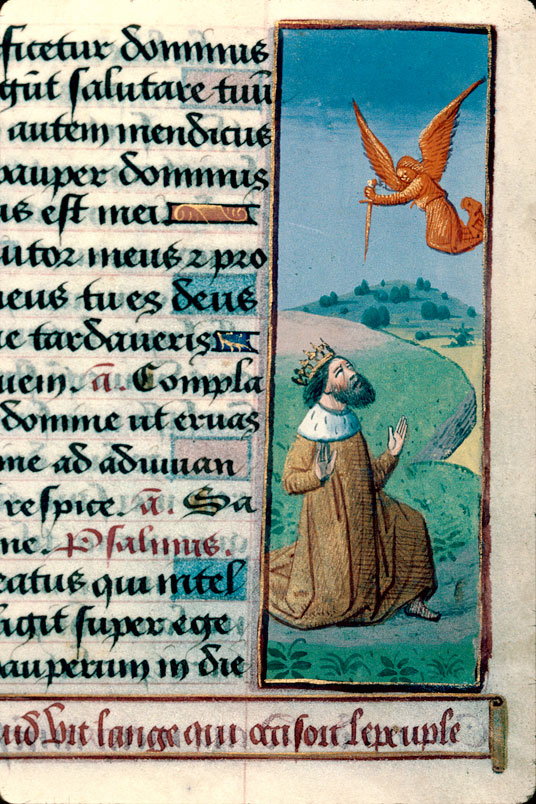 ficetur dominus
gūt salutare tuū
autem mendicus
pauper dominus
us est mei
utor meus ⁊ pro
meus tu es deus
ne tardaveris
uem. ā. Compla
domine ut eruas
me ad adiuuan
respice. ā. Sa
me. Psalmus.
eatus qui intel
ligit super ege
pauperum in die
uid vit lange qui occisoit le peuple